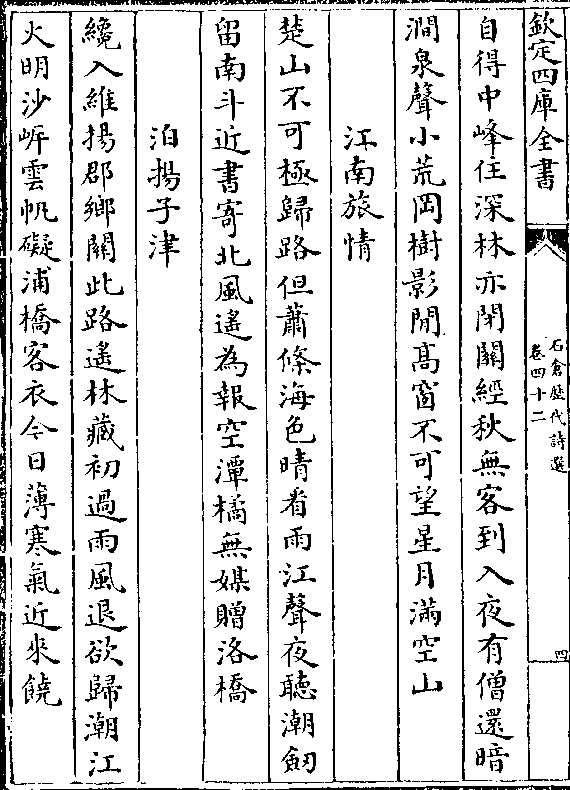 欽定四庫全書
石倉歷代詩選
卷四十二
四
自得中峰住深林亦閉關經秋無客到入夜有僧還暗
澗泉聲小荒岡樹影閒髙窗不可望星月滿空山
江南旅情
楚山不可極歸路但蕭條海色晴看雨江聲夜聽潮劒
留南斗近書寄北風遙為報空潭橘無媒贈洛橋
泊揚子津
纔入維揚郡鄉關此路遙林藏初過雨風退欲歸潮江
火明沙岍雲帆礙浦橋客衣今日薄寒氣近來饒